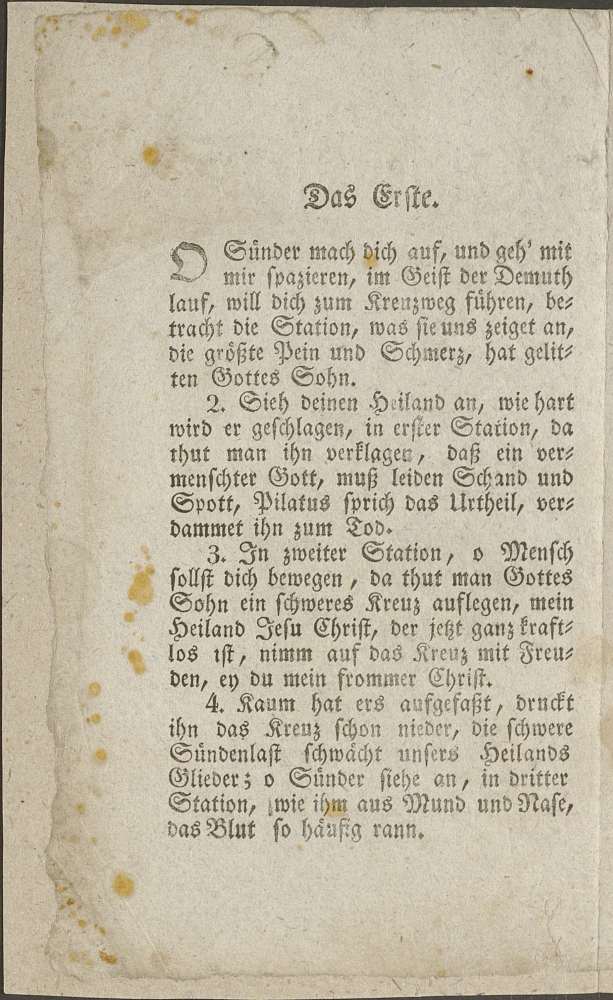 Das Erste.
O Sünder mach dich auf, und geh' mit
mir spazieren, im Geist der Demuth
lauf, will dich zum Kreuzweg führen, be-
tracht die Station, was sie uns zeiget an,
die größte Pein und Schmerz, hat gelit-
ten Gottes Sohn.
2. Sieh deinen Heiland an, wie hart
wird er geschlagen, in erster Station, da
thut man ihn verklagen, daß ein ver-
menschter Gott, muß leiden Schand und
Spott, Pilatus sprich das Urtheil, ver-
dammet ihn zum Tod.
3. In zweiter Station, o Mensch
sollst dich bewegen, da thut man Gottes
Sohn ein schweres Kreuz auflegen, mein
Heiland Jesu Christ, der jetzt ganz kraft-
los ist, nimm auf das Kreuz mit Freu-
den, ey du mein frommer Christ.
4. Kaum hat ers aufgefaßt, druckt
ihn das Kreuz schon nieder, die schwere
Sündenlast schwächt unsers Heilands
Glieder; o Sünder siehe an, in dritter
Station, wie ihm aus Mund und Nase,
das Blut so häufig rann.